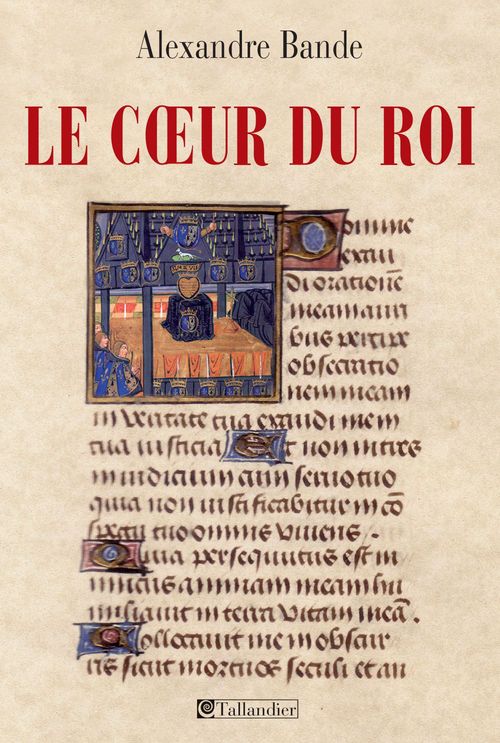 Alexandre Bande
LE CŒUR DU ROI
Domine
exau
di orationē
meam auri
bus percipe
obsecratio
nem meam
in veritate tua exaudi me in
tua iusticia Et non intres
in iudicium cum servo tuo
quia non iustificabitur in cō
spectu tuo omnis vivens.
Quia persequutus est in
imicus animam meam hu
miliavit in terra vitam meā.
Collocavit me in obscur
is sicut mortuos seculi et an
Tallandier